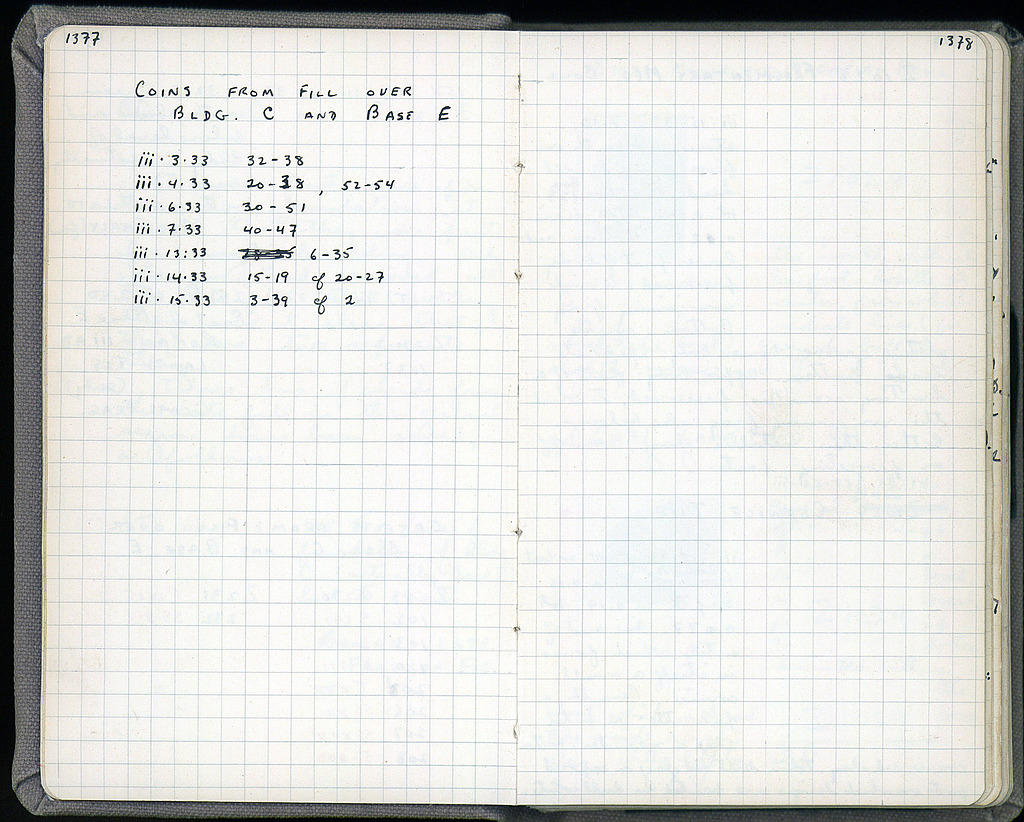 1377
COINS FROM FILL OVER
BLDG. C AND BASE E
iii · 3 · 33 32-38
iii · 4 · 33 20-38, 52-54
iii · 6 · 33 30-51
iii · 7 · 33 40-47
iii · 13 : 33 6-35
iii · 14 · 33 15-19 cf 20-27
iii · 15 · 33 3-39 cf 2
1378